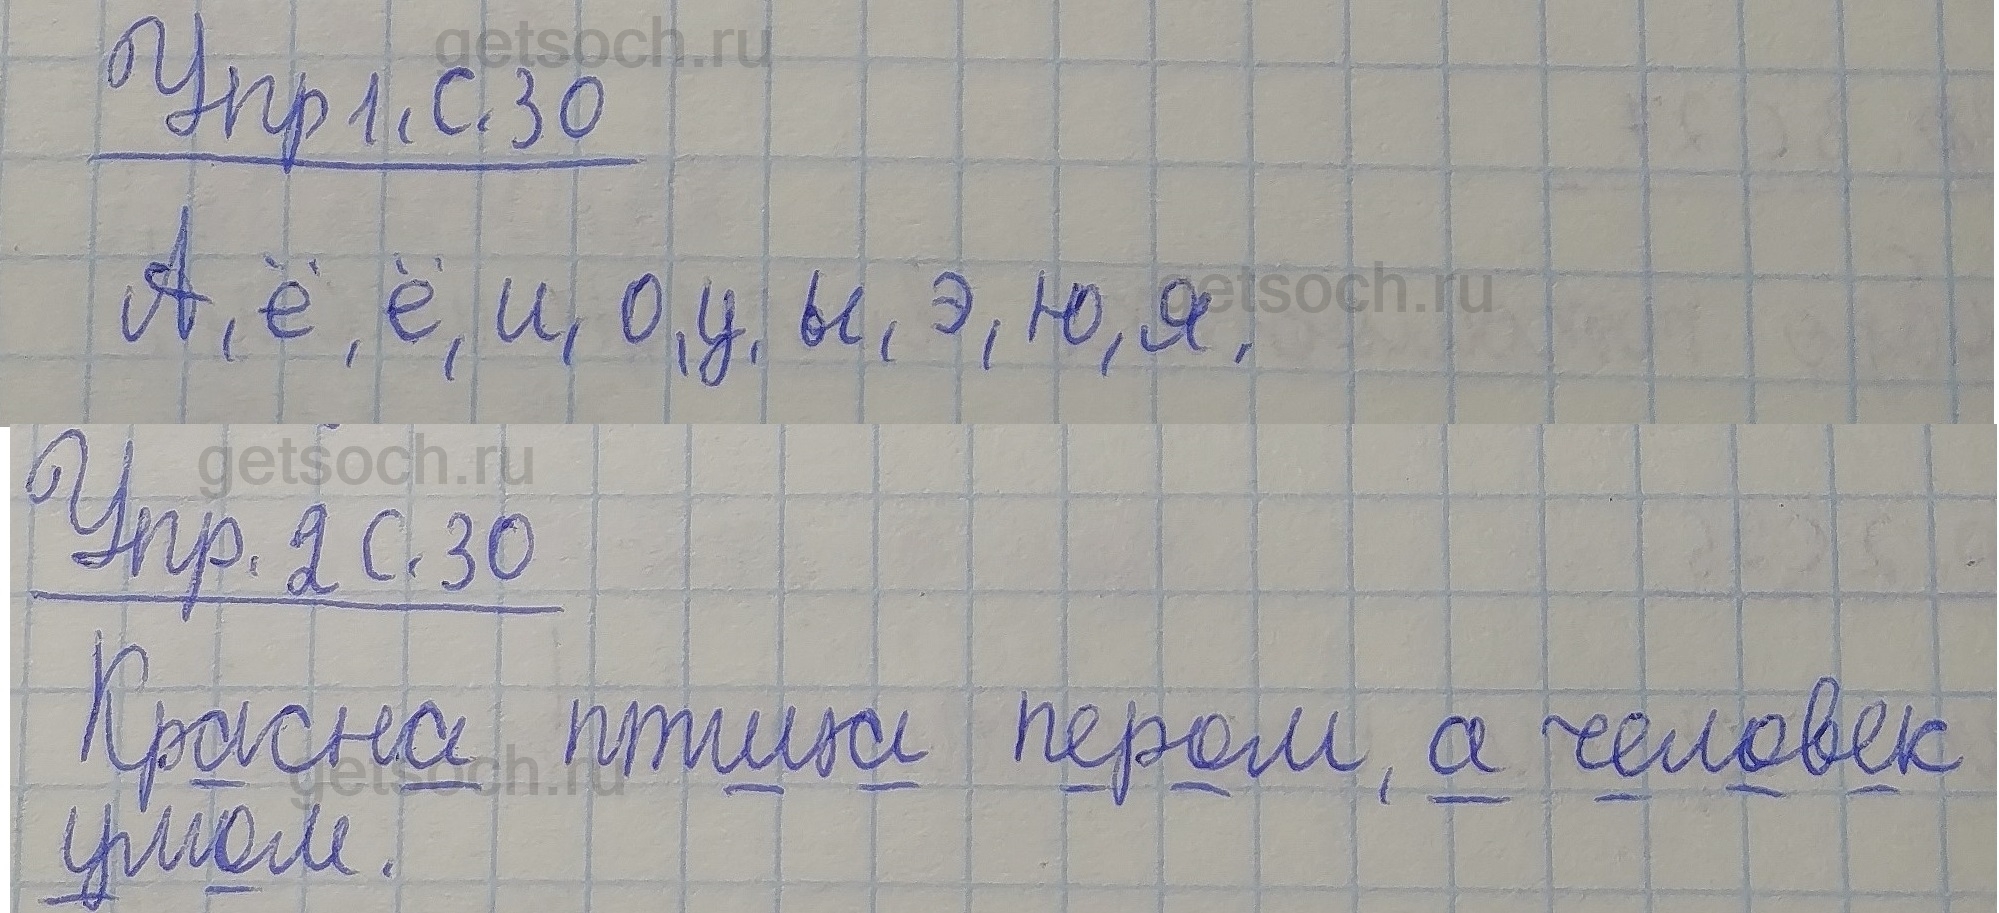 getsoch.ru
Упр 1. с. 30
А, ё, ё, и, о, у, ы, э, ю, я.
getsoch.ru
getsoch.ru
Упр. 2 с. 30
Красна птица пером, а человек
getsoch.ru
умом.